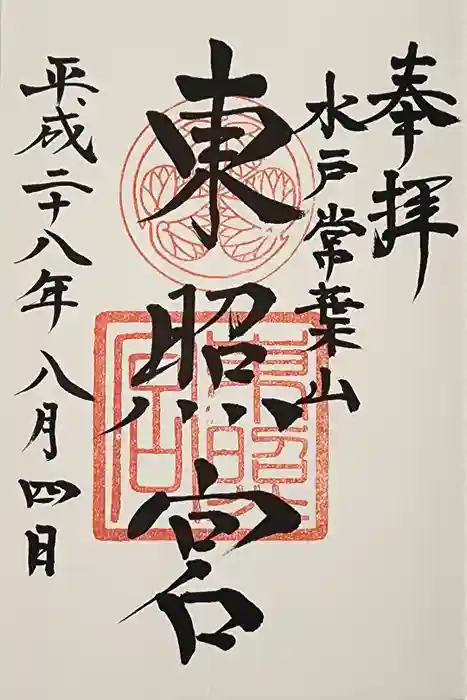 奉拝
水戸常葉山
東照宮
平成二十八年八月四日
東照宮